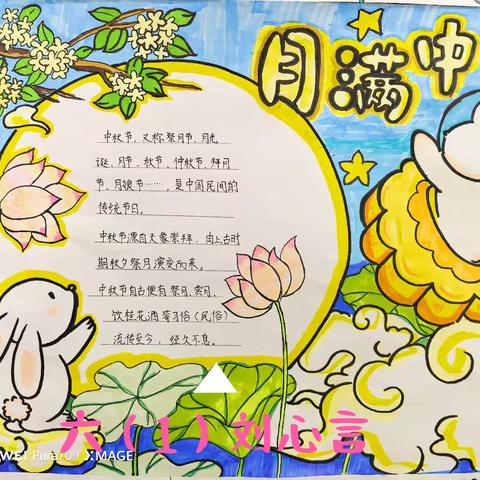 月满中
中秋节，又称祭月节、月光
诞、月节、秋节、仲秋节、拜月
节、月娘节……，是中国民间的
传统节日。
中秋节源自天象崇拜，由上古时
期秋夕祭月演变而来。
中秋节自古便有祭月、赏月、
饮桂花酒等习俗（民俗）
流传至今，经久不息。
六（1）刘心言